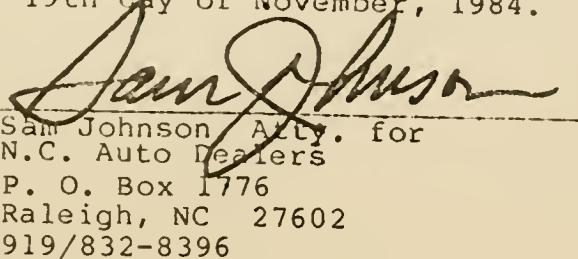 19th day of November, 1984.
Sam Johnson
Sam Johnson Atty. for
N.C. Auto Dealers
P. O. Box 1776
Raleigh, NC 27602
919/832-8396